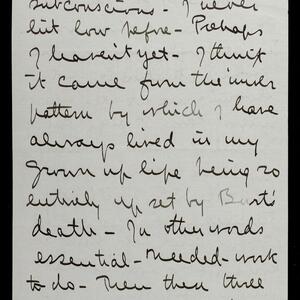 subconscious - I never
hit low before - Perhaps
I haven't yet - I think
it came from the inner
pattern by which I have
always lived in my
grown up life being so
entirely upset by Burt's
death - In other words
essential - needed - work
to do - Then these three